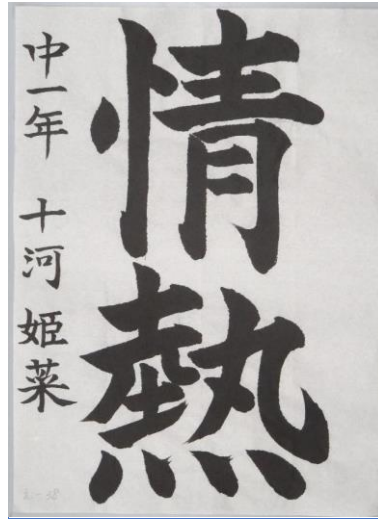 情熱
中一年 十河 姫菜